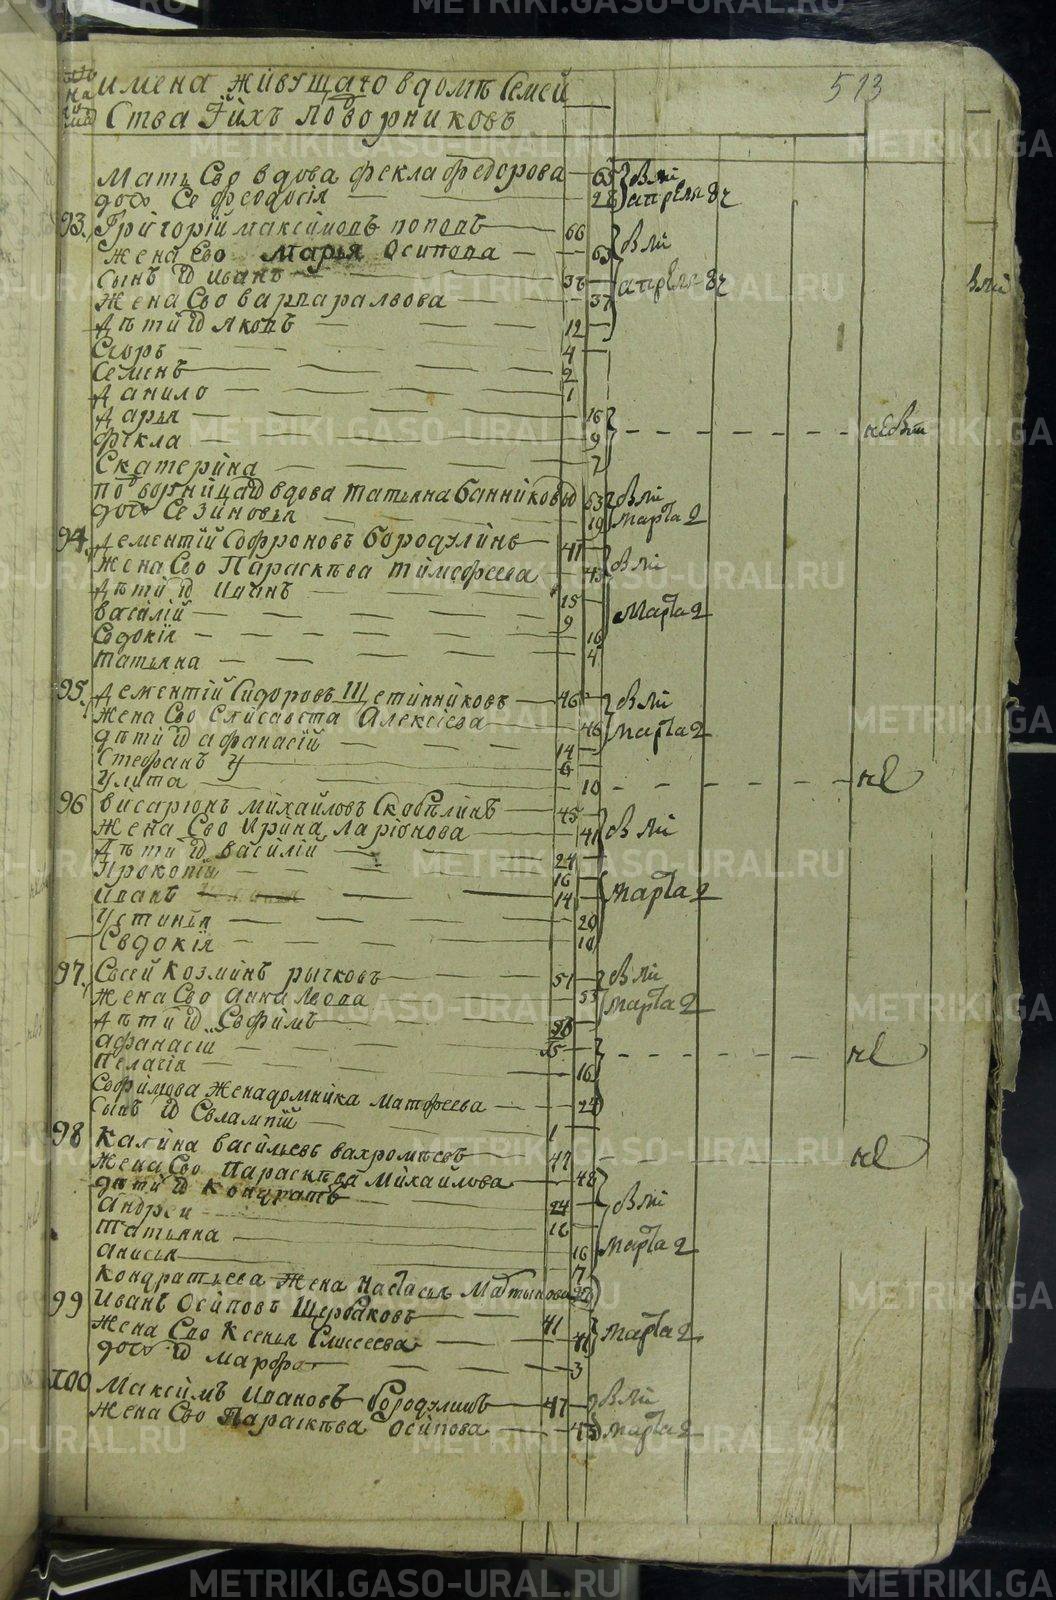 513
имена живущаго вдомѣ Семей
Ства Iйхъ подворниковъ
Мать Ево вдова Фекла Федорова 65 вли
дочь Ее Феодосiя 28 апреля 8ч
93. Григорiй максимовъ поповъ 66
жена Ево Марья Осипова 63 вли
Сынъ Иванъ 38 апреля 8ч
жена Ево варвара Львова 37
дѣти Яковъ 12
Егоръ 4
Семенъ 2
данило 1
дарья 16
Фекла 9 не вли
Екатерiна 7
подворница вдова татьяна банникова 63 вли
дочь Ее Зiновья 19 марта 2
94. дементiй Софроновъ бородулинъ 41
жена Ево Параскѣва тимофеева 45 вли
дѣти Иванъ 15
василiй 9 марта 2
Евдокiя 16
татьяна 4
95. дементiй Сидоровъ Щетинниковъ 46 вли
жена Ево Елисавета Алексiева 46 марта 2
дѣти афанасiй 14
Стефанъ 6
Улита 10 не
96 висарiонъ михайловъ Скобѣлинъ 45
жена Ево Ирина ларiонова 41 вли
дѣти василiй 24
Прокопiи 16
иванъ 14 марта 2
Устинья 20
Евдокiя 10
97. Евсей Козминъ рычковъ 51 вли
жена Ево анна Львова 53 марта 2
дѣти Ефимъ
афанасiй 15 не
пелагiя 16
Ефимова жена домника матфеева 24
сынъ Евлампiй 1
98 калина васильевъ вахромѣевъ 47 не
жена Ево Параскѣва Михайлова 48
дѣти Кондратъ 24 вли
Андреи 16
татьяна 16 марта 2
анисья 7
кондратьева жена настасья Мартынова
99 иванъ Осиповъ Щербаковъ 41
жена Ево Ксенья Елисеева 41 марта 2
дочь марфа 3
100 Максимъ ивановъ бородулинъ 47 вли
жена Ево Параскѣва Осипова 43 марта 2
вли